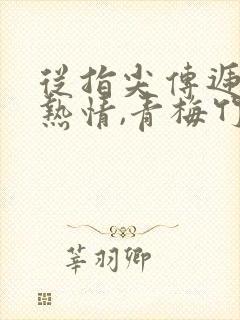 從指尖傳遞
熱情,青梅竹
莘羽卿